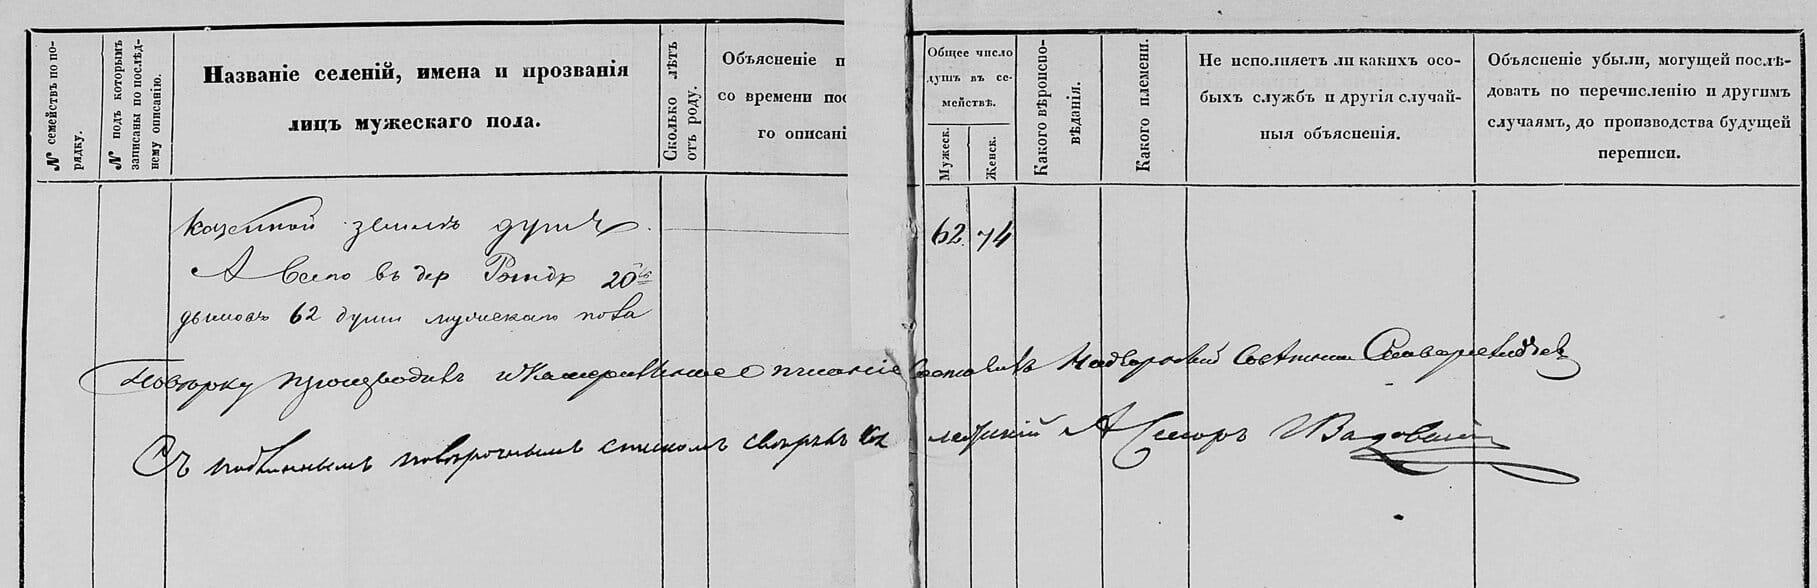 № семействъ по по-
рядку.
№ подъ которымъ
записаны по послѣд-
нему описанію.
Названіе селеній, имена и прозванія
лицъ мужескаго пола.
Сколько лѣтъ
отъ роду.
Объясненіе п
со времени пос
го описані
Общее число
душъ въ се-
мействѣ.
Мужеск.
Женск.
Какого вѣроиспо-
вѣданія.
Какого племени.
Не исполняетъ ли какихъ осо-
быхъ службъ и другія случай-
ныя объясненія.
Объясненіе убыли, могущей послѣ-
довать по перечисленію и другимъ
случаямъ, до производства будущей
переписи.
казенной землѣ душъ 62 74
А всего въ дер 20
дымовъ 62 души мужескаго пола
Повѣрку производилъ и камеральное описаніе составилъ Надворный Совѣтникъ
Съ подлиннымъ повѣрочнымъ спискомъ свѣрялъ Кол лежскій Асесоръ